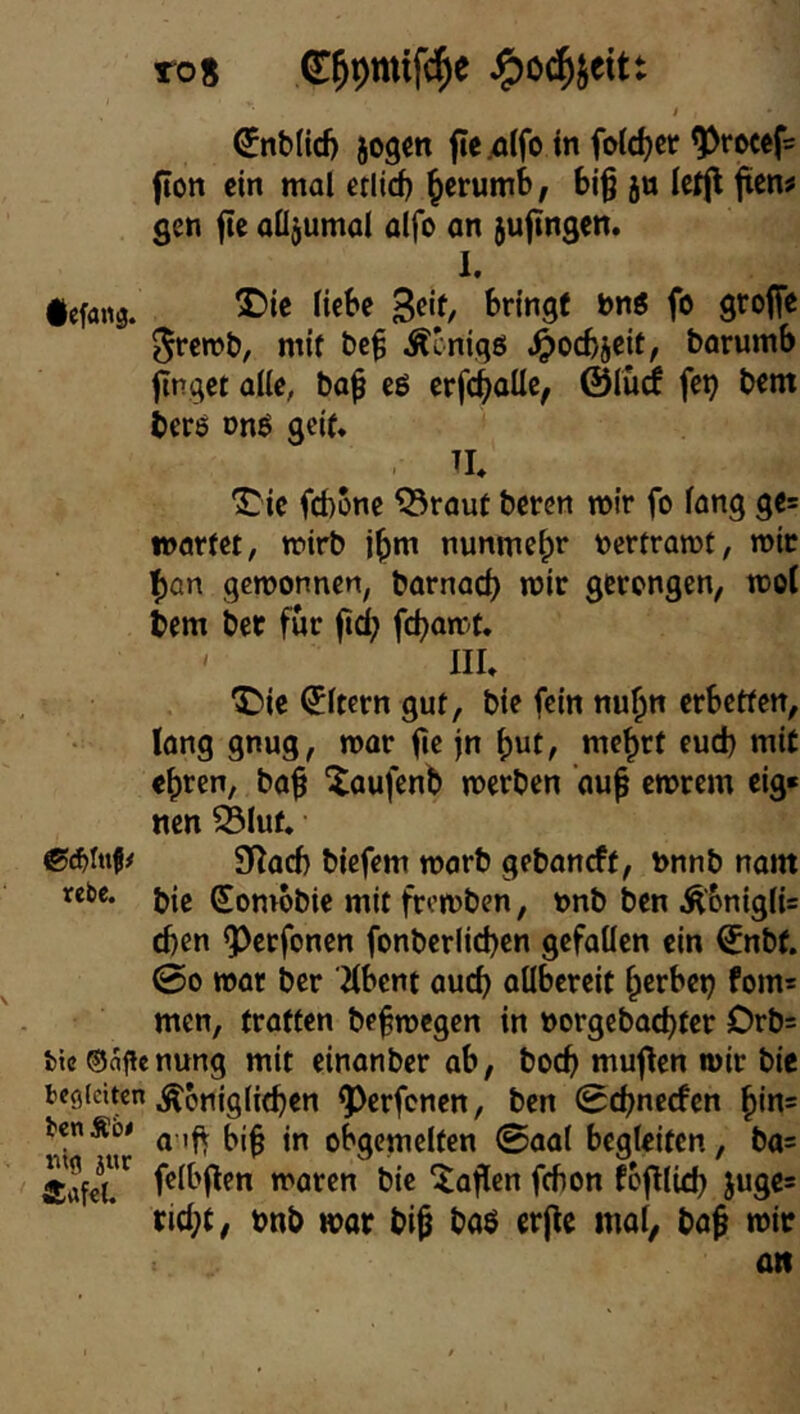 108 Chymische Hochzeit:
Endlich zogen sie also in solcher Proces-
sion ein mal etlich herumb, biß zu letst fien-
gen sie allzumal also an zusingen.
I.
Gesang.
Die liebe Zeit, bringt vns so grosse
Frewd, mit deß Königs Hochzeit, darumb
singet alle, daß es erschalle, Glück sey dem
ders vns geit.
II.
Die schöne Braut deren wir so lang ge-
wartet, wirb jhm nunmehr vertrawt, wir
han gewonnen, darnach wir gerongen, wol
dem der für sich schawt.
III.
Die Eltern gut, die sein nuhn erbetten,
lang gnug, war sie jn hut, mehrt euch mit
ehren, daß Tausend werden auß ewrem eig-
nen Blut.
Schluß-
rede.
Nach diesem ward gedanckt, vnnd nam
die Comödie mit frewden, vnd den Königli-
chen Personen sonderlichen gefallen ein Endt.
So war der Abent auch allbereit herbey kom-
men, tratten deßwegen in vorgedachter Ord-
nung mit einander ab, doch musten wir die
Königlichen Personen, den Schnecken hin-
auff biß in obgemelten Saal begleiten, da-
selbsten waren die Taflen schon köstlich zuge-
richt, vnd war diß das erste mal, daß wir
die Gäste
begleiten
den Kö-
nig zur
Tafel.
an